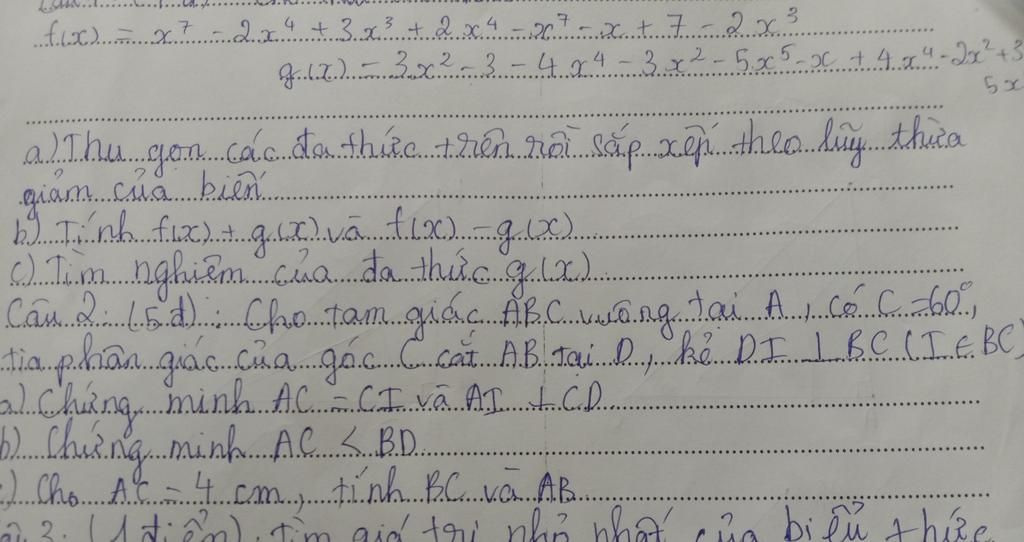 f(x) = x⁷ - 2x⁴ + 3x³ + 2x⁴ - x⁷ - x + 7 - 2x³
g(x) = 3x² - 3 - 4x⁴ - 3x² - 5x⁵ - x + 4x⁴ - 2x² + 3
5x
a) Thu gọn các đa thức trên rồi sắp xếp theo lũy thừa
giảm của biến
b) Tính f(x) + g(x) và f(x) - g(x)
c) Tìm nghiệm của đa thức g(x)
Câu 2: (5đ): Cho tam giác ABC vuông tại A, có C = 60°,
tia phân giác của góc C cắt AB tại D, kẻ DI ⊥ BC (I ∈ BC)
a) Chứng minh AC = CI và AI ⊥ CD
b) Chứng minh AC < BD
c) Cho AC = 4 cm, tính BC và AB
3: (1 điểm). Tìm giá trị nhỏ nhất của biểu thức